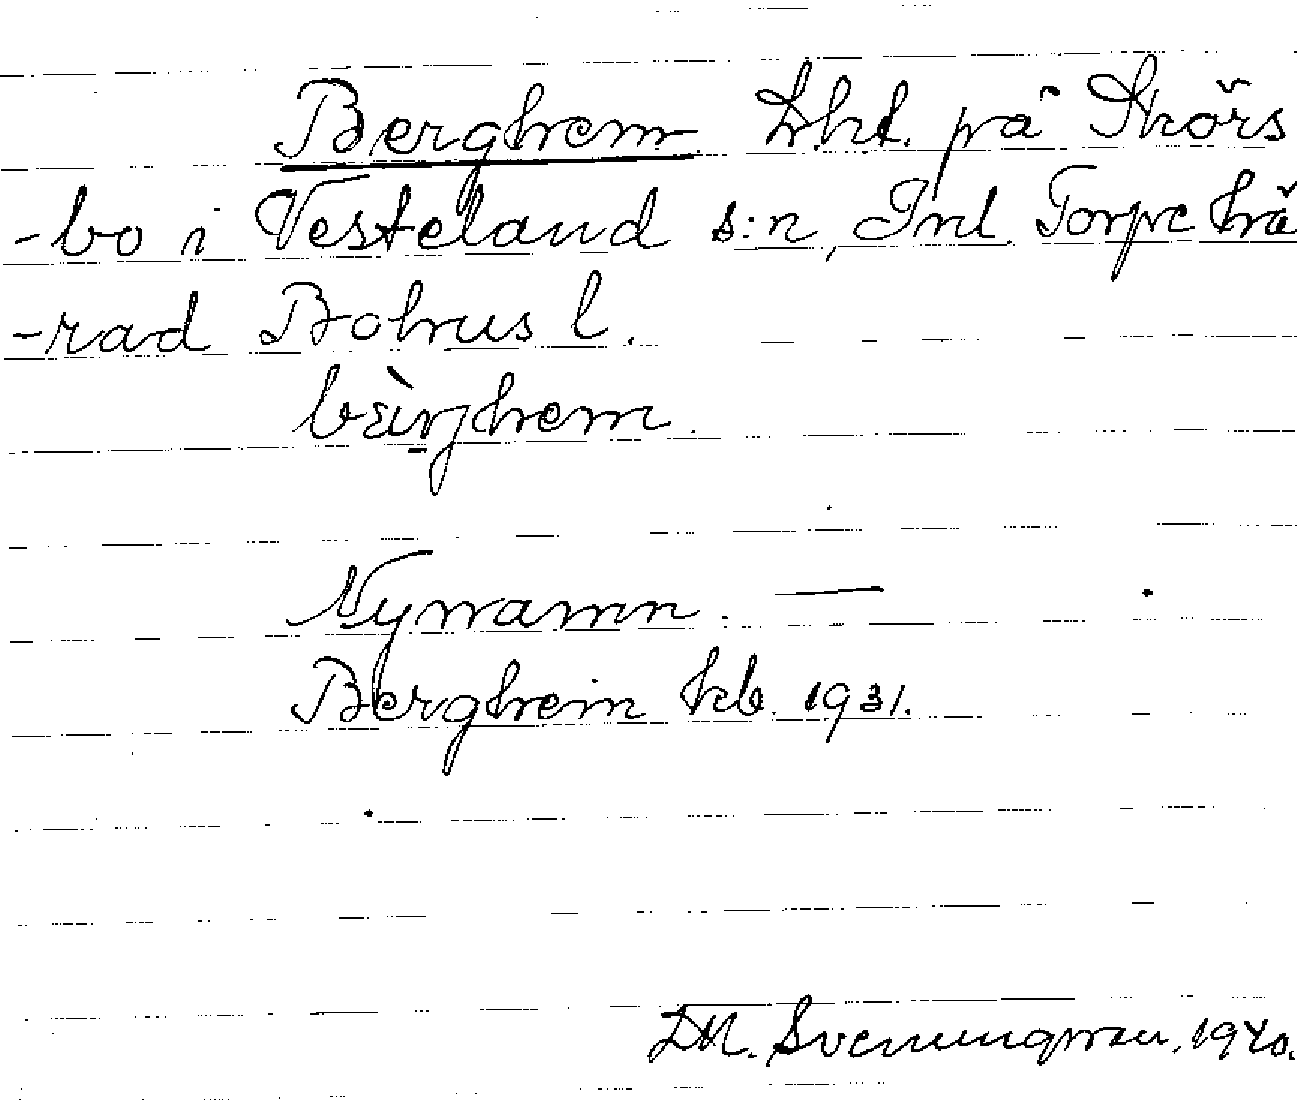 Berghem Lht. på Skörs
-bo i Vesteland s:n, Inl. Torpe hä
-rad Bohus l.
bæ̀rjhem.
Nynamn. —
Berghem kb. 1931.
D.M. Svenungsson, 1940.